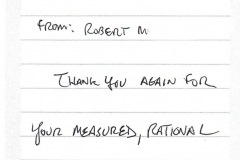 FROM: ROBERT M
THANK YOU AGAIN FOR
YOUR MEASURED, RATIONAL